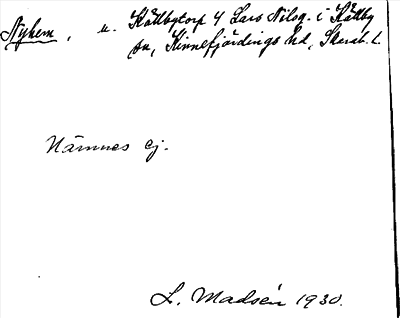 Nyhem, u. Kållbytorp 4 Lars Nilsg. i Källby
sn, Kinnefjärdings hd, Skarab. l.
Nämnes ej.
L. Madsén 1930.